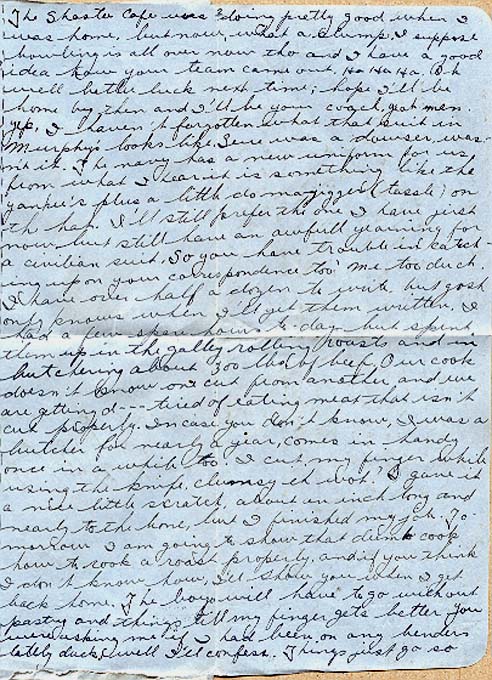 The Shasta Cafe was doing pretty good when I
was home, but now, what a slump, I suppose
bowling is all over now tho and I have a good
idea how your team came out, Ha Ha Ha. Oh
well better luck next time; hope I'll be
home by then and I'll be your coach, yeah man.
yep, I haven't forgotten what that suit in
Murphy's looks like. Sure was a dowser, was-
n't it. The navy has a new uniform for us,
from what I hear it is something like the
yankee's plus a little do ma jigger (tassle) on
the hat. I'll still prefer the one I have just
now but still have an awfull yearning for
a civilian suit. So you have trouble in catch-
ing up on your correspondence too? Me too duck.
I have over half a dozen to write but gosh
only knows when I'll get them written. I
had a few spare hours to-day but spent
them up in the galley rolling roasts and in
butchering about 300 lbs of beef. Our cook
doesn't know one cut from another, and we
are getting d--- tired of eating meat that isn't
cut properly. In case you don't know, I was a
butcher for nearly a year, comes in handy
once in a while too. I cut my finger while
using the knife, clumsy eh wot? I gave it
a nice little scratch, about an inch long and
nearly to the bone, but I finished my job. To
morrow I am going to show that dumb cook
how to cook a roast properly, and if you think
I don't know how, I'll show you when I get
back home. The boys will have to go without
pastry and things till my finger gets better. You
were asking me if I had been on any benders
lately duck, well I'll confess. Things just go so